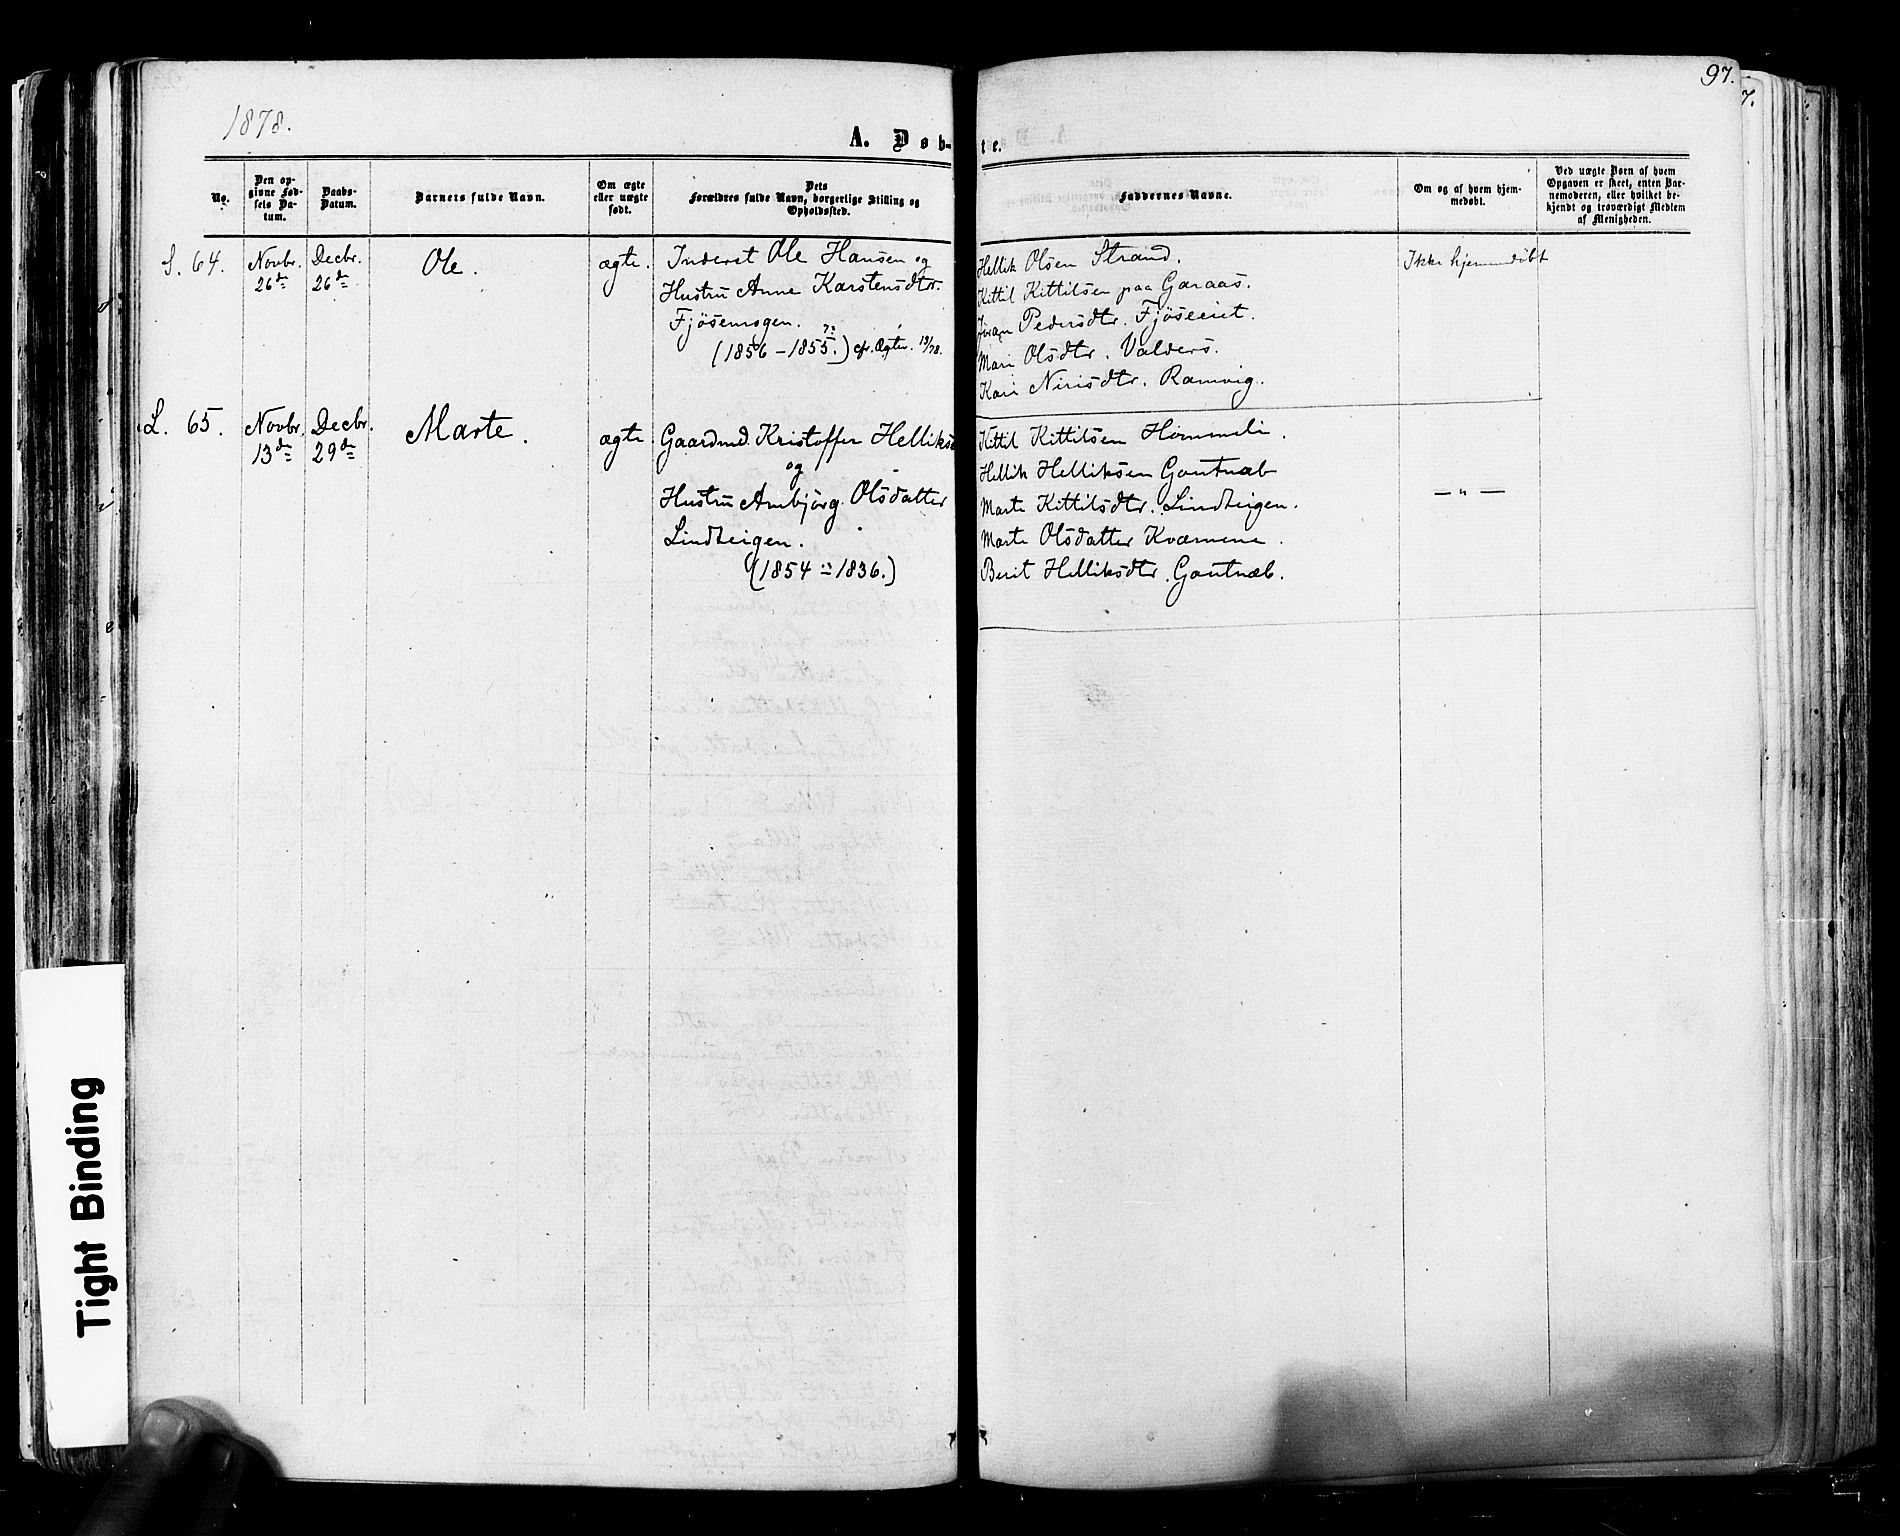 1878.
97.
7.
A. Døb-
te.
No.
Den op-
givne Fød-
sels Da-
tum.
Daabs-
Datum.
Barnets fulde Navn.
Om ægte
eller uægte
født.
Dets
Forældres fulde Navn, borgerlige Stilling og
Opholdssted.
Faddernes Navne.
Om og af hvem hjem-
medøbt.
Ved uægte Børn af hvem
Opgaven er skeet, enten Bar-
nemoderen, eller hvilket be-
kjendt og troværdigt Medlem
af Menigheden.
S. 64.
Novbr.
26de
Decbr.
26de
Ole.
ægte.
Inderst Ole Hansen og
Hustru Anne Karstensdtr.
(1856 - 1855.) cfr. Ægtev. 19/78.
Hellik Olsen Strand.
Kittil Kittilsen paa Garaas.
Jöran Pedersdtr. Fjöseeiet.
Mari Olsdtr. Valders.
Kari Nirisdtr. Ramvig.
Ikke hjemmedøbt
L. 65.
Novbr.
13de
Decbr.
29de
Marte.
ægte.
Gaardmd. Kristoffer Helliks
og
Hustru Ambjörg Olsdatter
Lindteigen.
(1854 - 1836.)
Kittil Kittilsen Hommeli.
Hellik Helliksen Gontnæb
Marte Kittilsdtr. Lindteigen.
Marte Olsdatter Kværnene.
Berit Helliksdtr. Gontnæb.
— „ —
Tight Binding